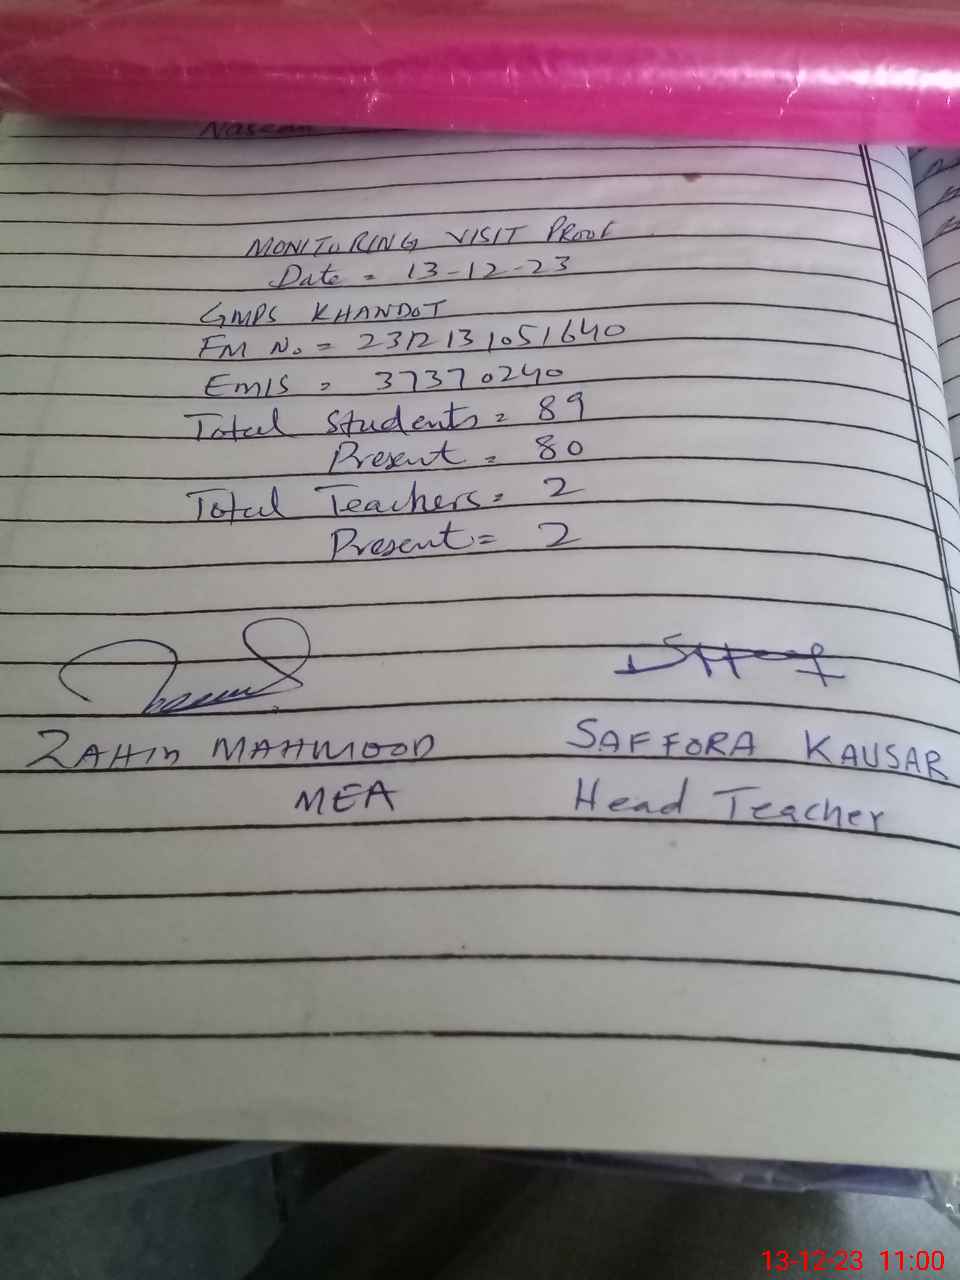 MONITORING VISIT PROOF
Date = 13-12-23
GMPS KHANDOT
FM No. = 2312131051640
EMIS = 37370240
Total Students = 89
Present = 80
Total Teachers = 2
Present = 2
MAHMOOD SAFFORA KAUSAR
MEA Head Teacher
13-12-23 11:00